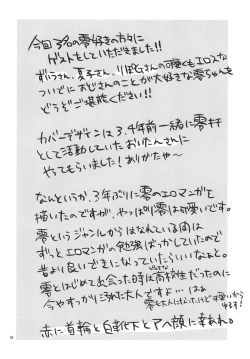 今回3名の零好きの方々に
ゲストをしていただきました!!
ずいうさん、夏子さん、リPGさんの可愛くもエロスな
ついでにおじさんのことが大好きな零ちゃんを
どうぞご堪能ください!!
カバーデザインは3、4年前一緒に零本
として活動していたおいたんさんに
やってもらいました!ありがたや〜
なんというか、3年ぶりに零のエロマンガを
描いたのですが、やっぱり零は可愛いです。
零というジャンルからはなれている間は
ずっとエロマンガの勉強ばっかしていたので
昔より良いできになっていたらいいなぁと。
零とはじめて出会った時は高校生だったのに
今やすっかり三次に大人ですよ…はぁ
零も大人にけんけど可愛いから
ゆるす!
赤に首輪と白靴下とアヘ顔に幸あれ。